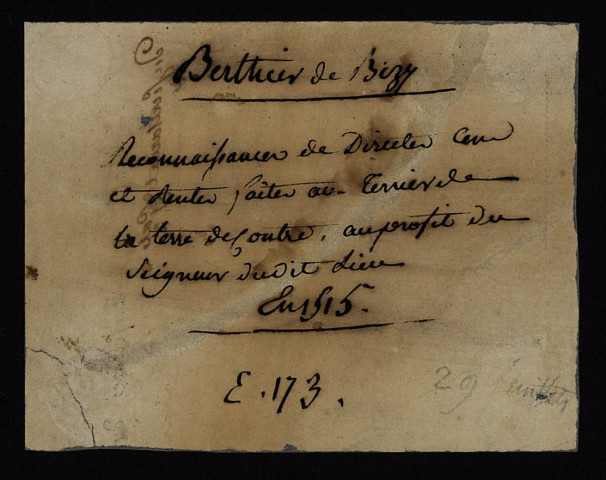 Berthier de Bizy
Reconnaissances de Directes Cens
et Rentes faites au Terrier de
la terre de Contre, au profit du
Seigneur dudit Lieu
En 1515.
E. 173.
29 feuillets